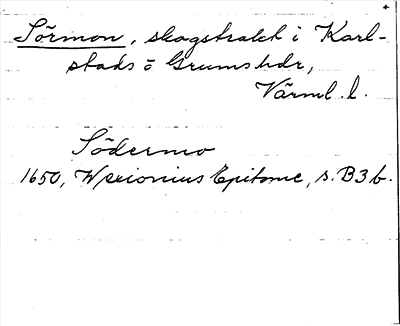 Sörmon, skogstrakt i Karl-
stads o Grums hdr,
Värml. l.
Södermo
1650, Wexionius Epitome, s. B3b.